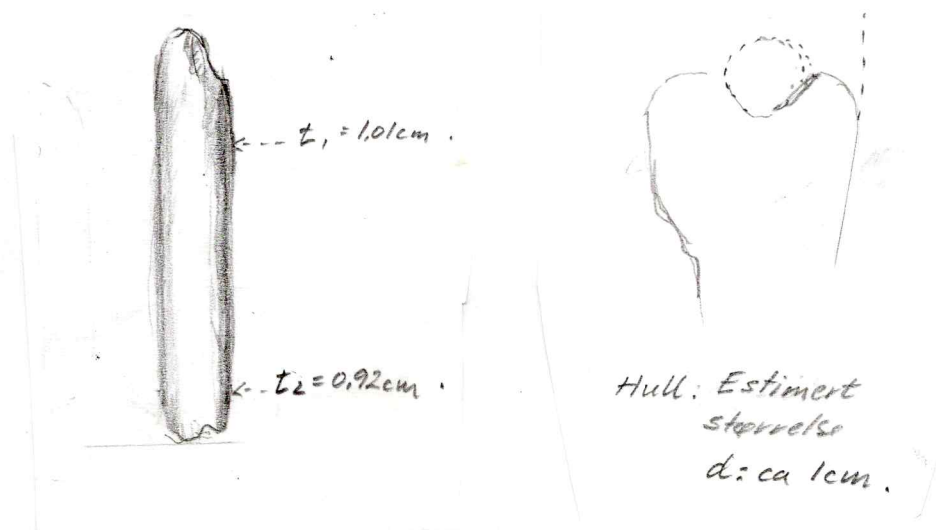 t₁ = 1,01cm.
t₂ = 0,92cm.
Hull: Estimert
størrelse
d: ca 1cm.